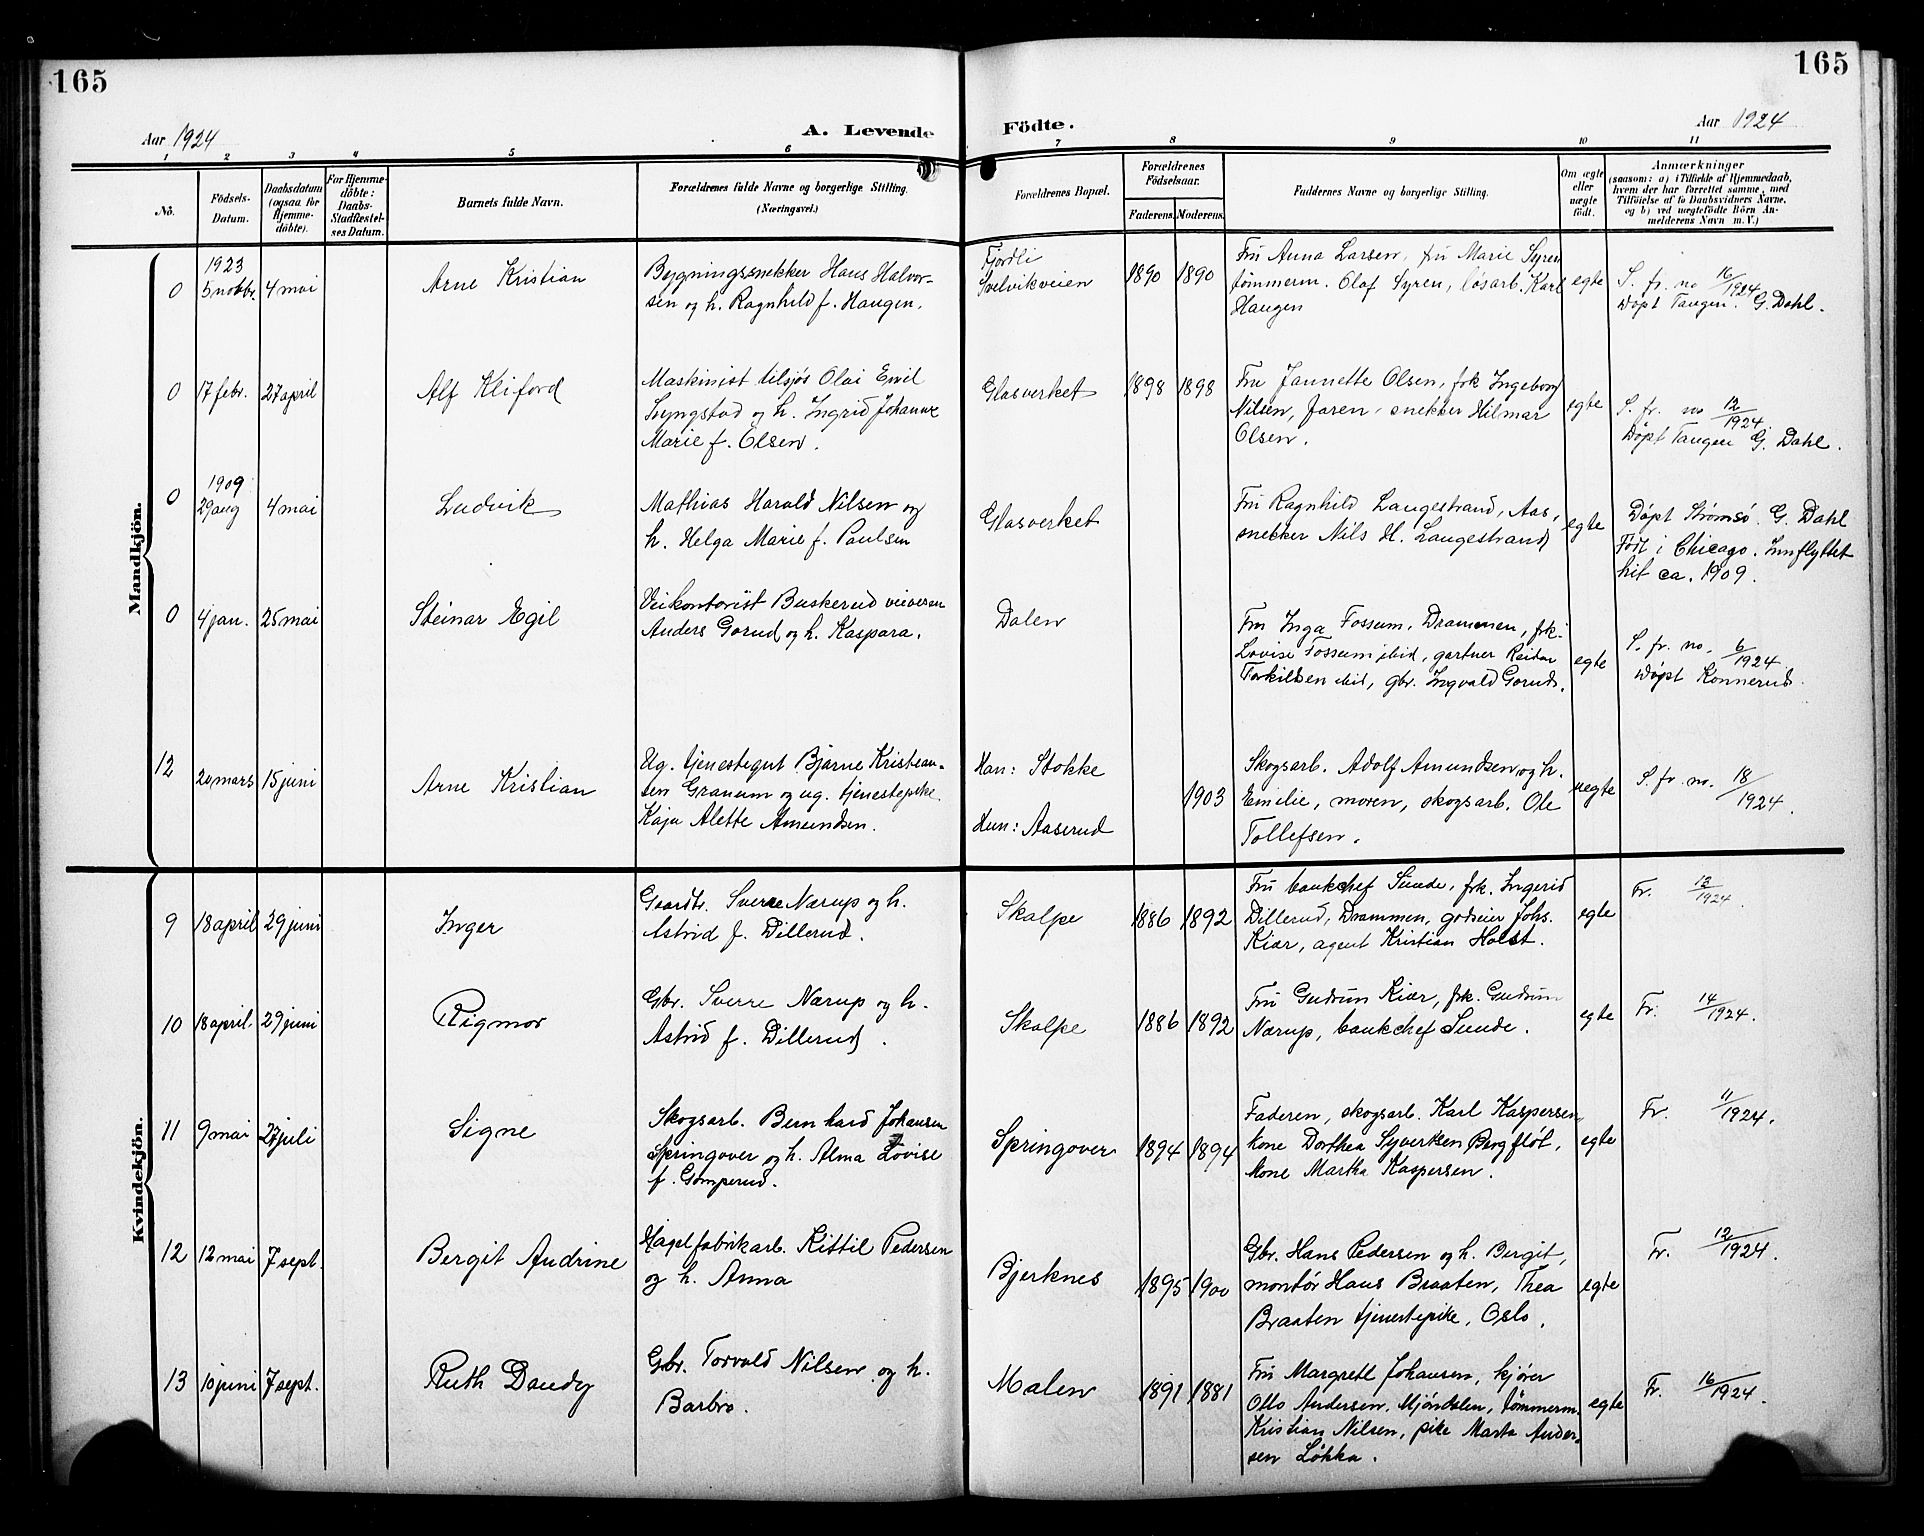 165
165
Aar 1924
A. Levende Födte.
Aar 1924
1 2 3 4 5 6 7 8 9 10 11
No.
Födsels-Datum.
Daabsdatum (ogsaa for Hjemme-döbte).
For Hjemme-döbte: Daabs-Stadfæstel-ses Datum.
Barnets fulde Navn.
Forældrenes fulde Navne og borgerlige Stilling.
(Næringsvei.)
Forældrenes Bopæl.
Forældrenes Födselsaar.
Faderens. Moderens.
Faddernes Navne og borgerlige Stilling.
Om ægte eller uægte födt.
Anmærkninger
(saasom: a) i Tilfælde af Hjemmedaab,
hvem der har forrettet samme, med
Tilföielse af to Daabsvidners Navne,
og b) ved uægtefödte Börn An-
melderens Navn m. V.)
Mandkjön.
0
1923
5 novbr.
4 mai
Arne Kristian
Bygningssnekker Hans Halvor-
sen og h. Ragnhild f. Haugen.
Fjordli
Svelvikveien
1890
1890
Fru Anna Larsen, fru Marie Syren
tømmerm. Olaf Syren, løsarb. Karl
Haugen
egte
S. fr. no 16/1924
Døpt Tangen. G. Dahl.
0
17 febr.
27 april
Alf Kliford
Maskinist tilsjøs Olai Emil
Lyngstad og h. Ingrid Johanne
Marie f. Olsen.
Glasverket
1898
1898
Fru Jannette Olsen, frk Ingeborg
Nilsen, faren, snekker Hilmar
Olsen.
egte
S. fr. no 12/1924.
Døpt Tangen G. Dahl.
0
1909
29 aug
4 mai
Ludvik
Mathias Harald Nilsen og
h. Helga Marie f. Paulsen
Glasverket
Fru Ragnhild Langestrand, Aas,
snekker Nils H. Langestrand
egte
Døpt Strømsø. G. Dahl
Født i Chicago. Innflyttet
hit ca. 1909.
0
4 jan.
25 mai
Steinar Egil
Veikontorist Buskerud veivesen
Anders Gorud og h. Kaspara.
Dalen
Fru Inga Fossum, Drammen, frk.
Lovise Fossum ibid, gartner Reidar
Torkildsen ibid, gbr. Ingvald Gorud.
egte
S. fr. no. 6/1924
Døpt Konnerud.
12
20 mars
15 juni
Arne Kristian
Ug. tjenestegut Bjarne Kristian-
sen Granum og ug. tjenestepike
Kaja Alette Amundsen.
Han: Stokke
Hun: Aaserud
1903
Skogsarb. Adolf Amundsen og h.
Emilie, moren, skogsarb. Ole
Tollefsen.
uegte
S. fr. no. 18/1924.
Kvindekjön.
9
18 april
29 juni
Inger
Gaardbr. Sverre Nærup og h.
Astrid f. Dillerud.
Skalpe
1886
1892
Fru bankchef Sunde, frk. Ingerid
Dillerud, Drammen, godseier Johs.
Kiær, agent Kristian Holst.
egte
Fr. 13/1924.
10
18 april.
29 juni
Rigmor
Gbr. Sverre Nærup og h.
Astrid f. Dillerud.
Skalpe
1886
1892
Fru Gudrun Kiær, frk. Gudrun
Nærup, bankchef Sunde.
egte
Fr. 14/1924.
11
9 mai
27 juli
Signe
Skogsarb. Bernhard Johansen
Springover og h. Alma Lovise
f. Gomperud.
Springover
1894
1894
Faderen, skogsarb. Karl Kaspersen
kone Dorthea Syvertsen Bergfløt,
kone Martha Kaspersen.
egte
Fr. 11/1924.
12
12 mai
7 sept.
Bergit Andrine
Hagelfabrikarb. Kittil Pedersen
og h. Anna
Bjerknes
1895
1900
Gbr. Hans Pedersen og h. Bergit,
montør Hans Braaten, Thea
Braaten tjenestepike, Oslo.
egte
Fr. 12/1924.
13
10 juni
7 sept.
Ruth Dandy
Gbr. Torvald Nilsen og h.
Barbro.
Malen
1891
1881
Fru Margrethe Johansen, kjører
Otto Andersen, Mjøndalen, tømmerm.
Kristian Nilsen, pike Marta Ander-
sen Løkka.
egte
Fr. 16/1924.